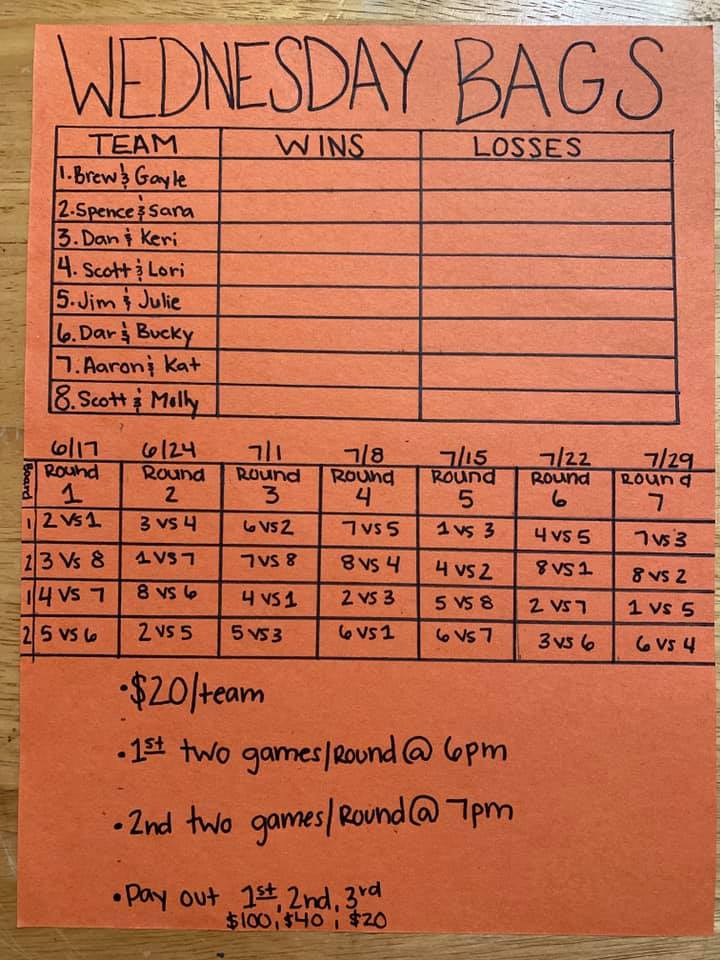 WEDNESDAY BAGS
TEAM WINS LOSSES
1. Brew & Gayle
2. Spence & Sara
3. Dan & Keri
4. Scott & Lori
5. Jim & Julie
6. Dar & Bucky
7. Aaron & Kat
8. Scott & Molly
6/17 6/24 7/1 7/8 7/15 7/22 7/29
Board Round 1 Round 2 Round 3 Round 4 Round 5 Round 6 Round 7
1 2 vs 1 3 vs 4 6 vs 2 7 vs 5 1 vs 3 4 vs 5 7 vs 3
2 3 vs 8 1 vs 7 7 vs 8 8 vs 4 4 vs 2 8 vs 1 8 vs 2
1 4 vs 7 8 vs 6 4 vs 1 2 vs 3 5 vs 8 2 vs 7 1 vs 5
2 5 vs 6 2 vs 5 5 vs 3 6 vs 1 6 vs 7 3 vs 6 6 vs 4
• $20/team
• 1st two games/Round @ 6pm
• 2nd two games/Round @ 7pm
• Pay out 1st, 2nd, 3rd
$100, $40, $20